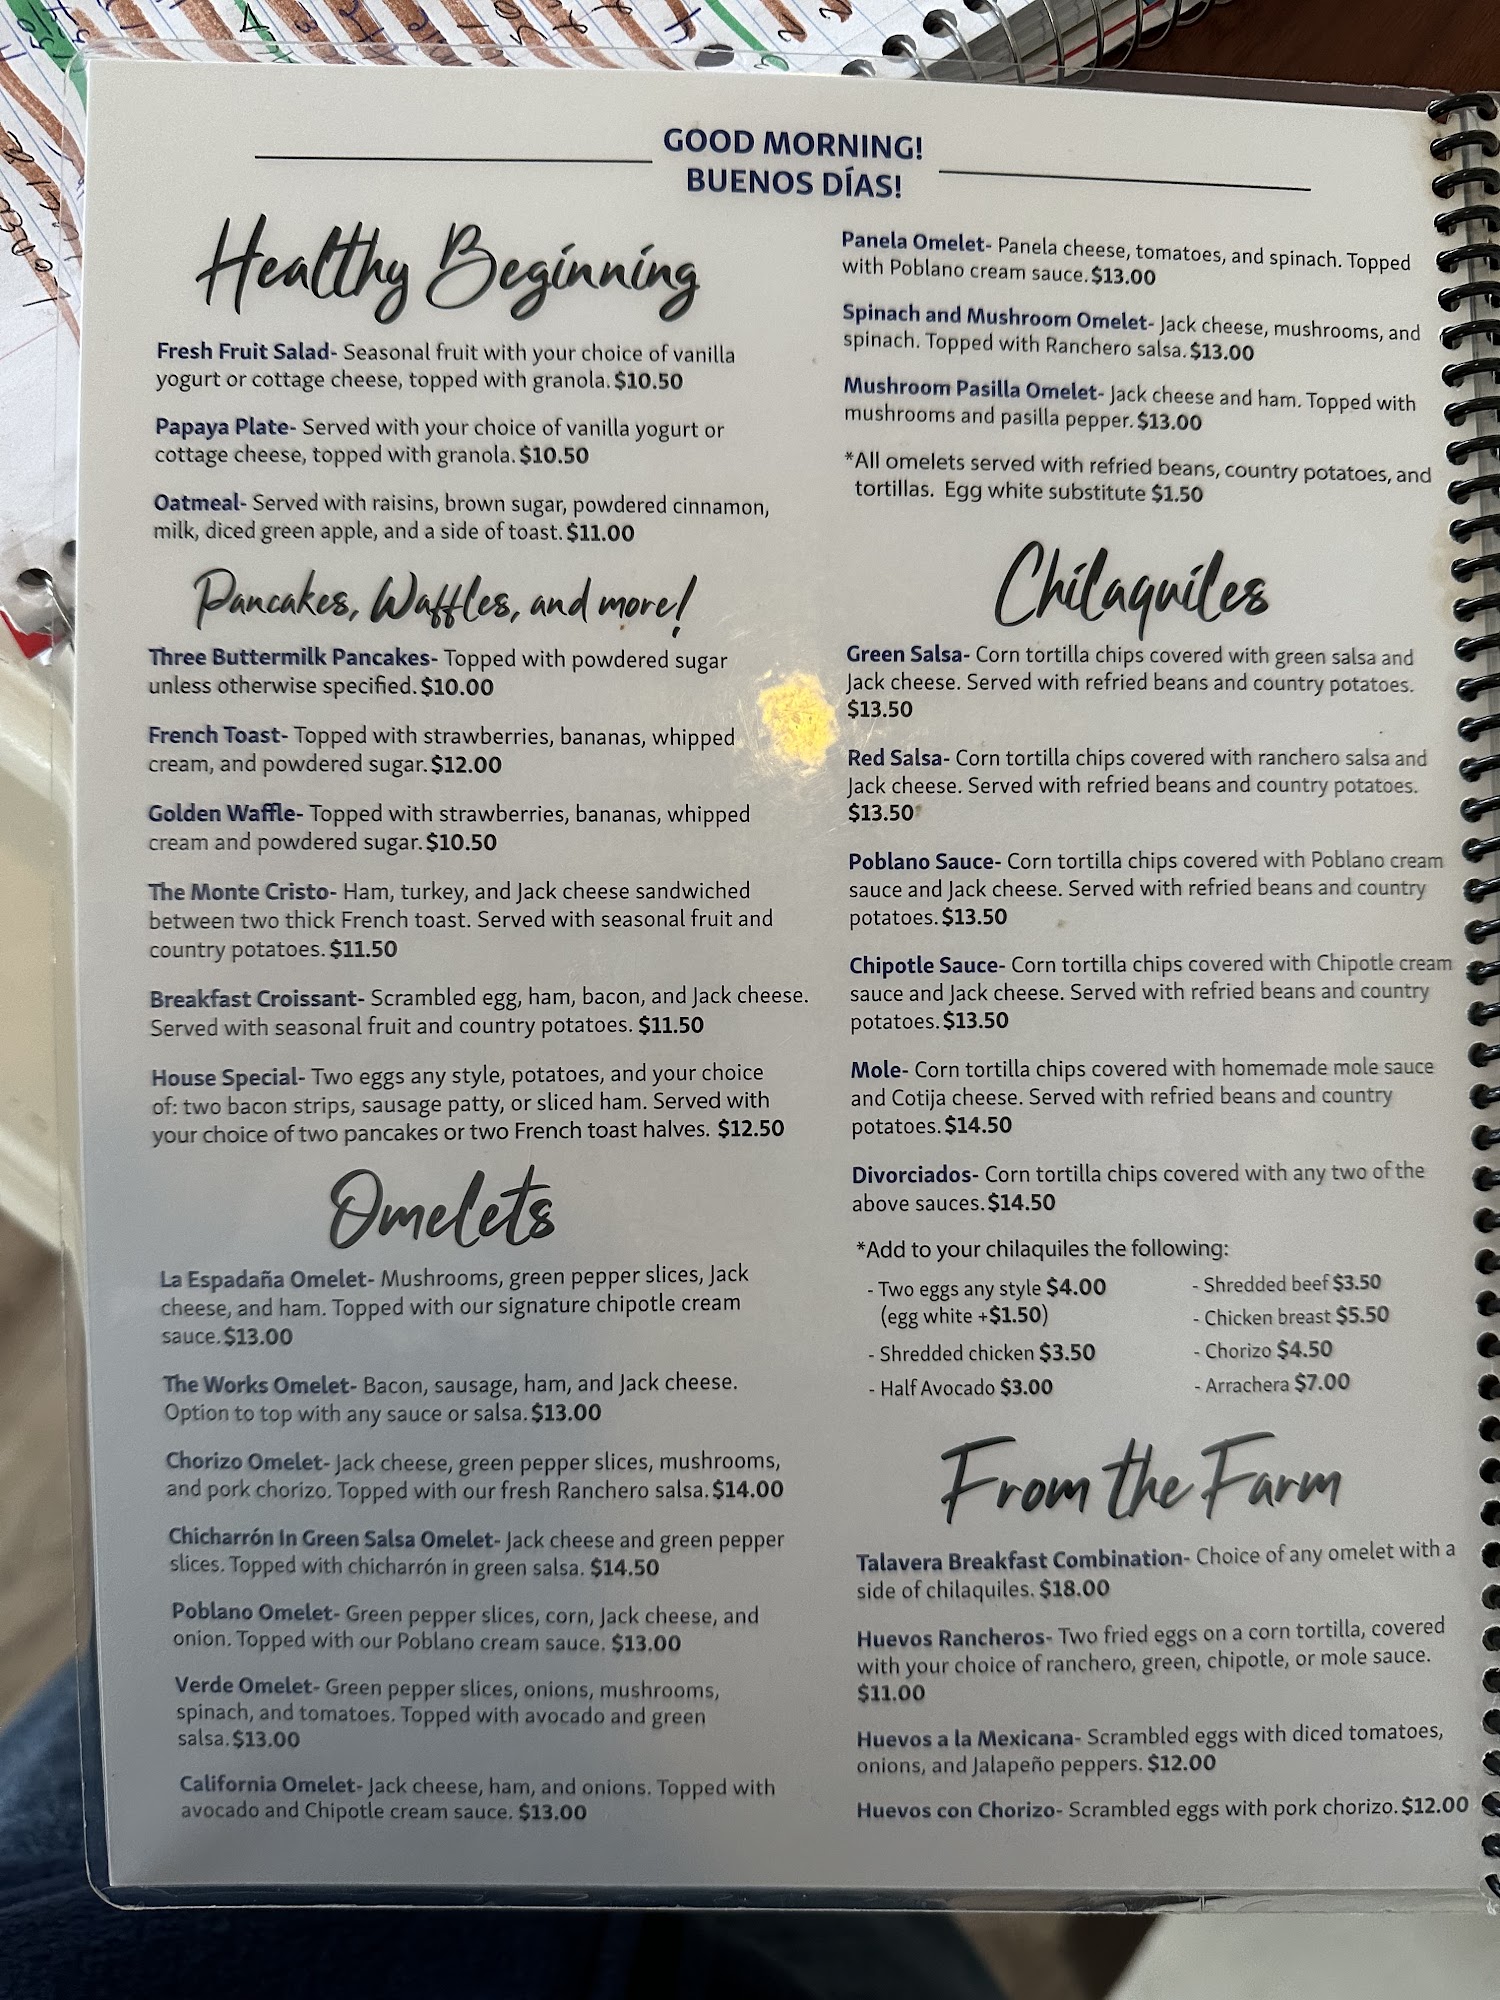 GOOD MORNING!
BUENOS DÍAS!
Healthy Beginning
Fresh Fruit Salad- Seasonal fruit with your choice of vanilla
yogurt or cottage cheese, topped with granola. $10.50
Papaya Plate- Served with your choice of vanilla yogurt or
cottage cheese, topped with granola. $10.50
Oatmeal- Served with raisins, brown sugar, powdered cinnamon,
milk, diced green apple, and a side of toast. $11.00
Pancakes, Waffles, and more!
Three Buttermilk Pancakes- Topped with powdered sugar
unless otherwise specified. $10.00
French Toast- Topped with strawberries, bananas, whipped
cream, and powdered sugar. $12.00
Golden Waffle- Topped with strawberries, bananas, whipped
cream and powdered sugar. $10.50
The Monte Cristo- Ham, turkey, and Jack cheese sandwiched
between two thick French toast. Served with seasonal fruit and
country potatoes. $11.50
Breakfast Croissant- Scrambled egg, ham, bacon, and Jack cheese.
Served with seasonal fruit and country potatoes. $11.50
House Special- Two eggs any style, potatoes, and your choice
of: two bacon strips, sausage patty, or sliced ham. Served with
your choice of two pancakes or two French toast halves. $12.50
Omelets
La Espadaña Omelet- Mushrooms, green pepper slices, Jack
cheese, and ham. Topped with our signature chipotle cream
sauce. $13.00
The Works Omelet- Bacon, sausage, ham, and Jack cheese.
Option to top with any sauce or salsa. $13.00
Chorizo Omelet- Jack cheese, green pepper slices, mushrooms,
and pork chorizo. Topped with our fresh Ranchero salsa. $14.00
Chicharrón In Green Salsa Omelet- Jack cheese and green pepper
slices. Topped with chicharrón in green salsa. $14.50
Poblano Omelet- Green pepper slices, corn, Jack cheese, and
onion. Topped with our Poblano cream sauce. $13.00
Verde Omelet- Green pepper slices, onions, mushrooms,
spinach, and tomatoes. Topped with avocado and green
salsa. $13.00
California Omelet- Jack cheese, ham, and onions. Topped with
avocado and Chipotle cream sauce. $13.00
Panela Omelet- Panela cheese, tomatoes, and spinach. Topped
with Poblano cream sauce. $13.00
Spinach and Mushroom Omelet- Jack cheese, mushrooms, and
spinach. Topped with Ranchero salsa. $13.00
Mushroom Pasilla Omelet- Jack cheese and ham. Topped with
mushrooms and pasilla pepper. $13.00
*All omelets served with refried beans, country potatoes, and
tortillas. Egg white substitute $1.50
Chilaquiles
Green Salsa- Corn tortilla chips covered with green salsa and
Jack cheese. Served with refried beans and country potatoes.
$13.50
Red Salsa- Corn tortilla chips covered with ranchero salsa and
Jack cheese. Served with refried beans and country potatoes.
$13.50
Poblano Sauce- Corn tortilla chips covered with Poblano cream
sauce and Jack cheese. Served with refried beans and country
potatoes. $13.50
Chipotle Sauce- Corn tortilla chips covered with Chipotle cream
sauce and Jack cheese. Served with refried beans and country
potatoes. $13.50
Mole- Corn tortilla chips covered with homemade mole sauce
and Cotija cheese. Served with refried beans and country
potatoes. $14.50
Divorciados- Corn tortilla chips covered with any two of the
above sauces. $14.50
*Add to your chilaquiles the following:
- Two eggs any style $4.00
(egg white +$1.50)
- Shredded chicken $3.50
- Half Avocado $3.00
- Shredded beef $3.50
- Chicken breast $5.50
- Chorizo $4.50
- Arrachera $7.00
From the Farm
Talavera Breakfast Combination- Choice of any omelet with a
side of chilaquiles. $18.00
Huevos Rancheros- Two fried eggs on a corn tortilla, covered
with your choice of ranchero, green, chipotle, or mole sauce.
$11.00
Huevos a la Mexicana- Scrambled eggs with diced tomatoes,
onions, and Jalapeño peppers. $12.00
Huevos con Chorizo- Scrambled eggs with pork chorizo. $12.00